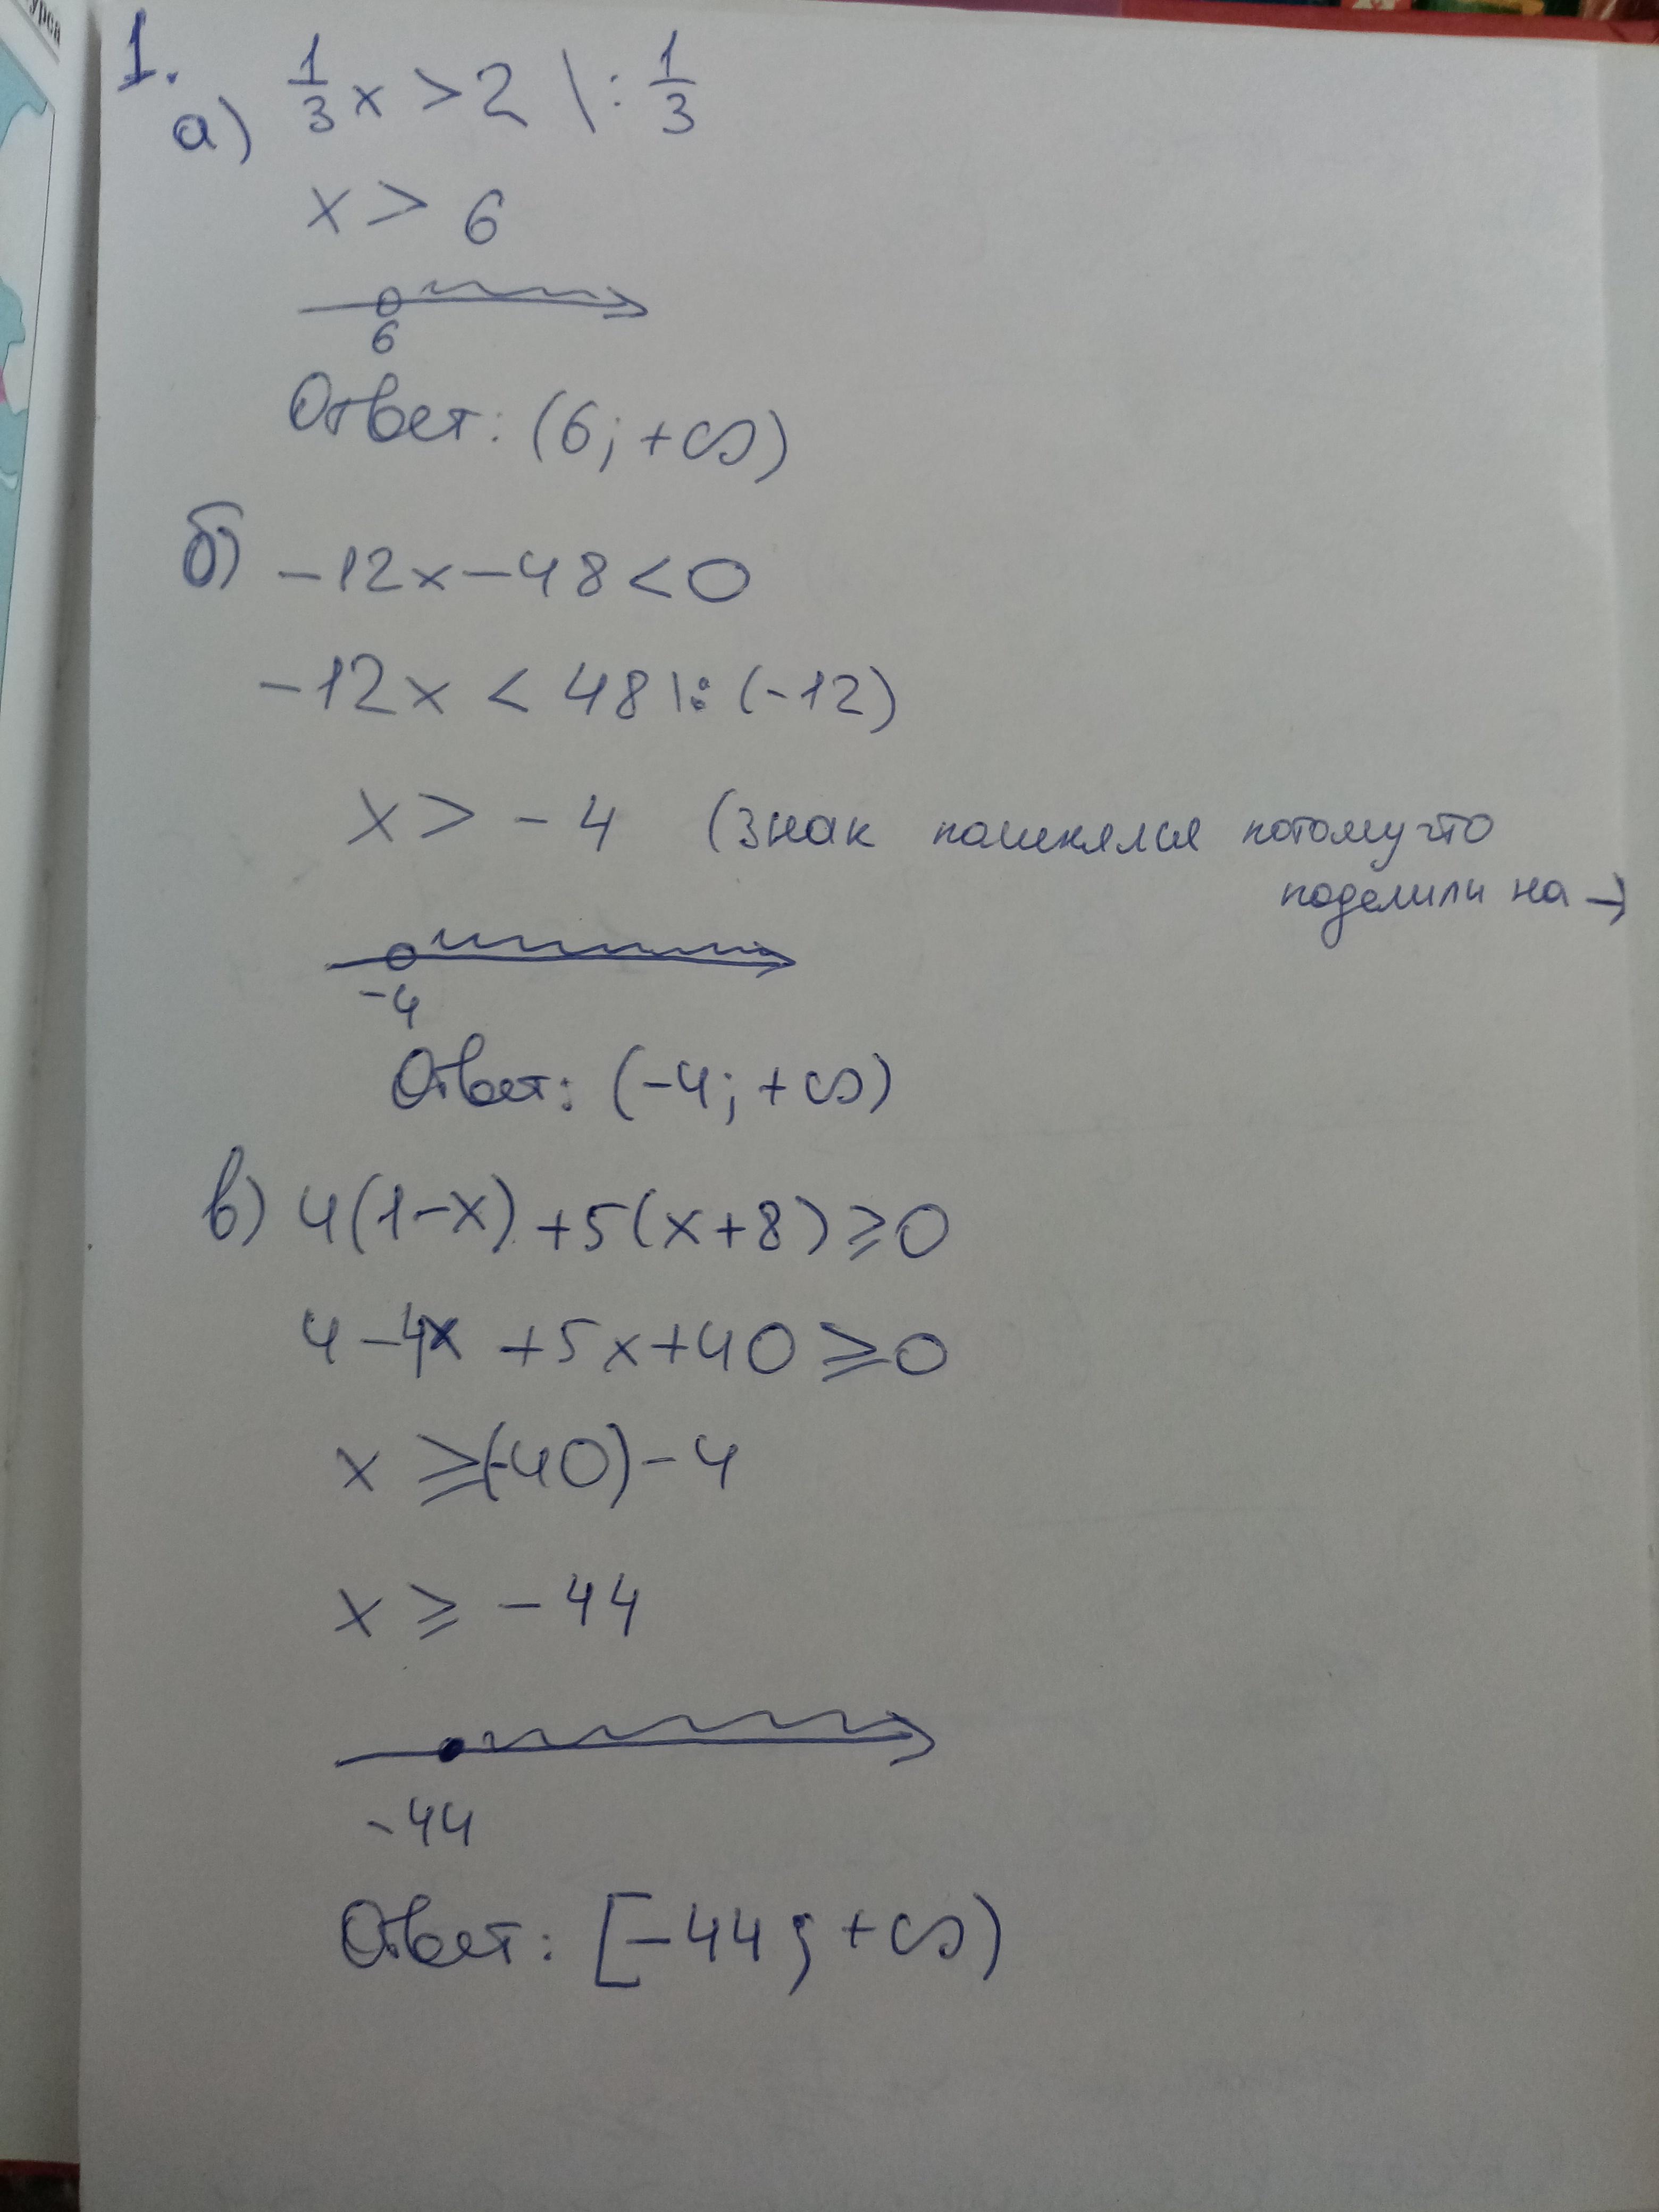 1.
а) 1/3 x > 2 \ : 1/3
x > 6
6
Ответ: (6; +∞)
б) -12x-48<0
-12x < 48 |: (-12)
x > -4 (Знак поменялся потому что
поделили на -)
-4
Ответ: (-4; +∞)
в) 4(1-x)+5(x+8)≥0
4-4x+5x+40≥0
x ≥(-40)-4
x ≥ -44
-44
Ответ: [-44; +∞)